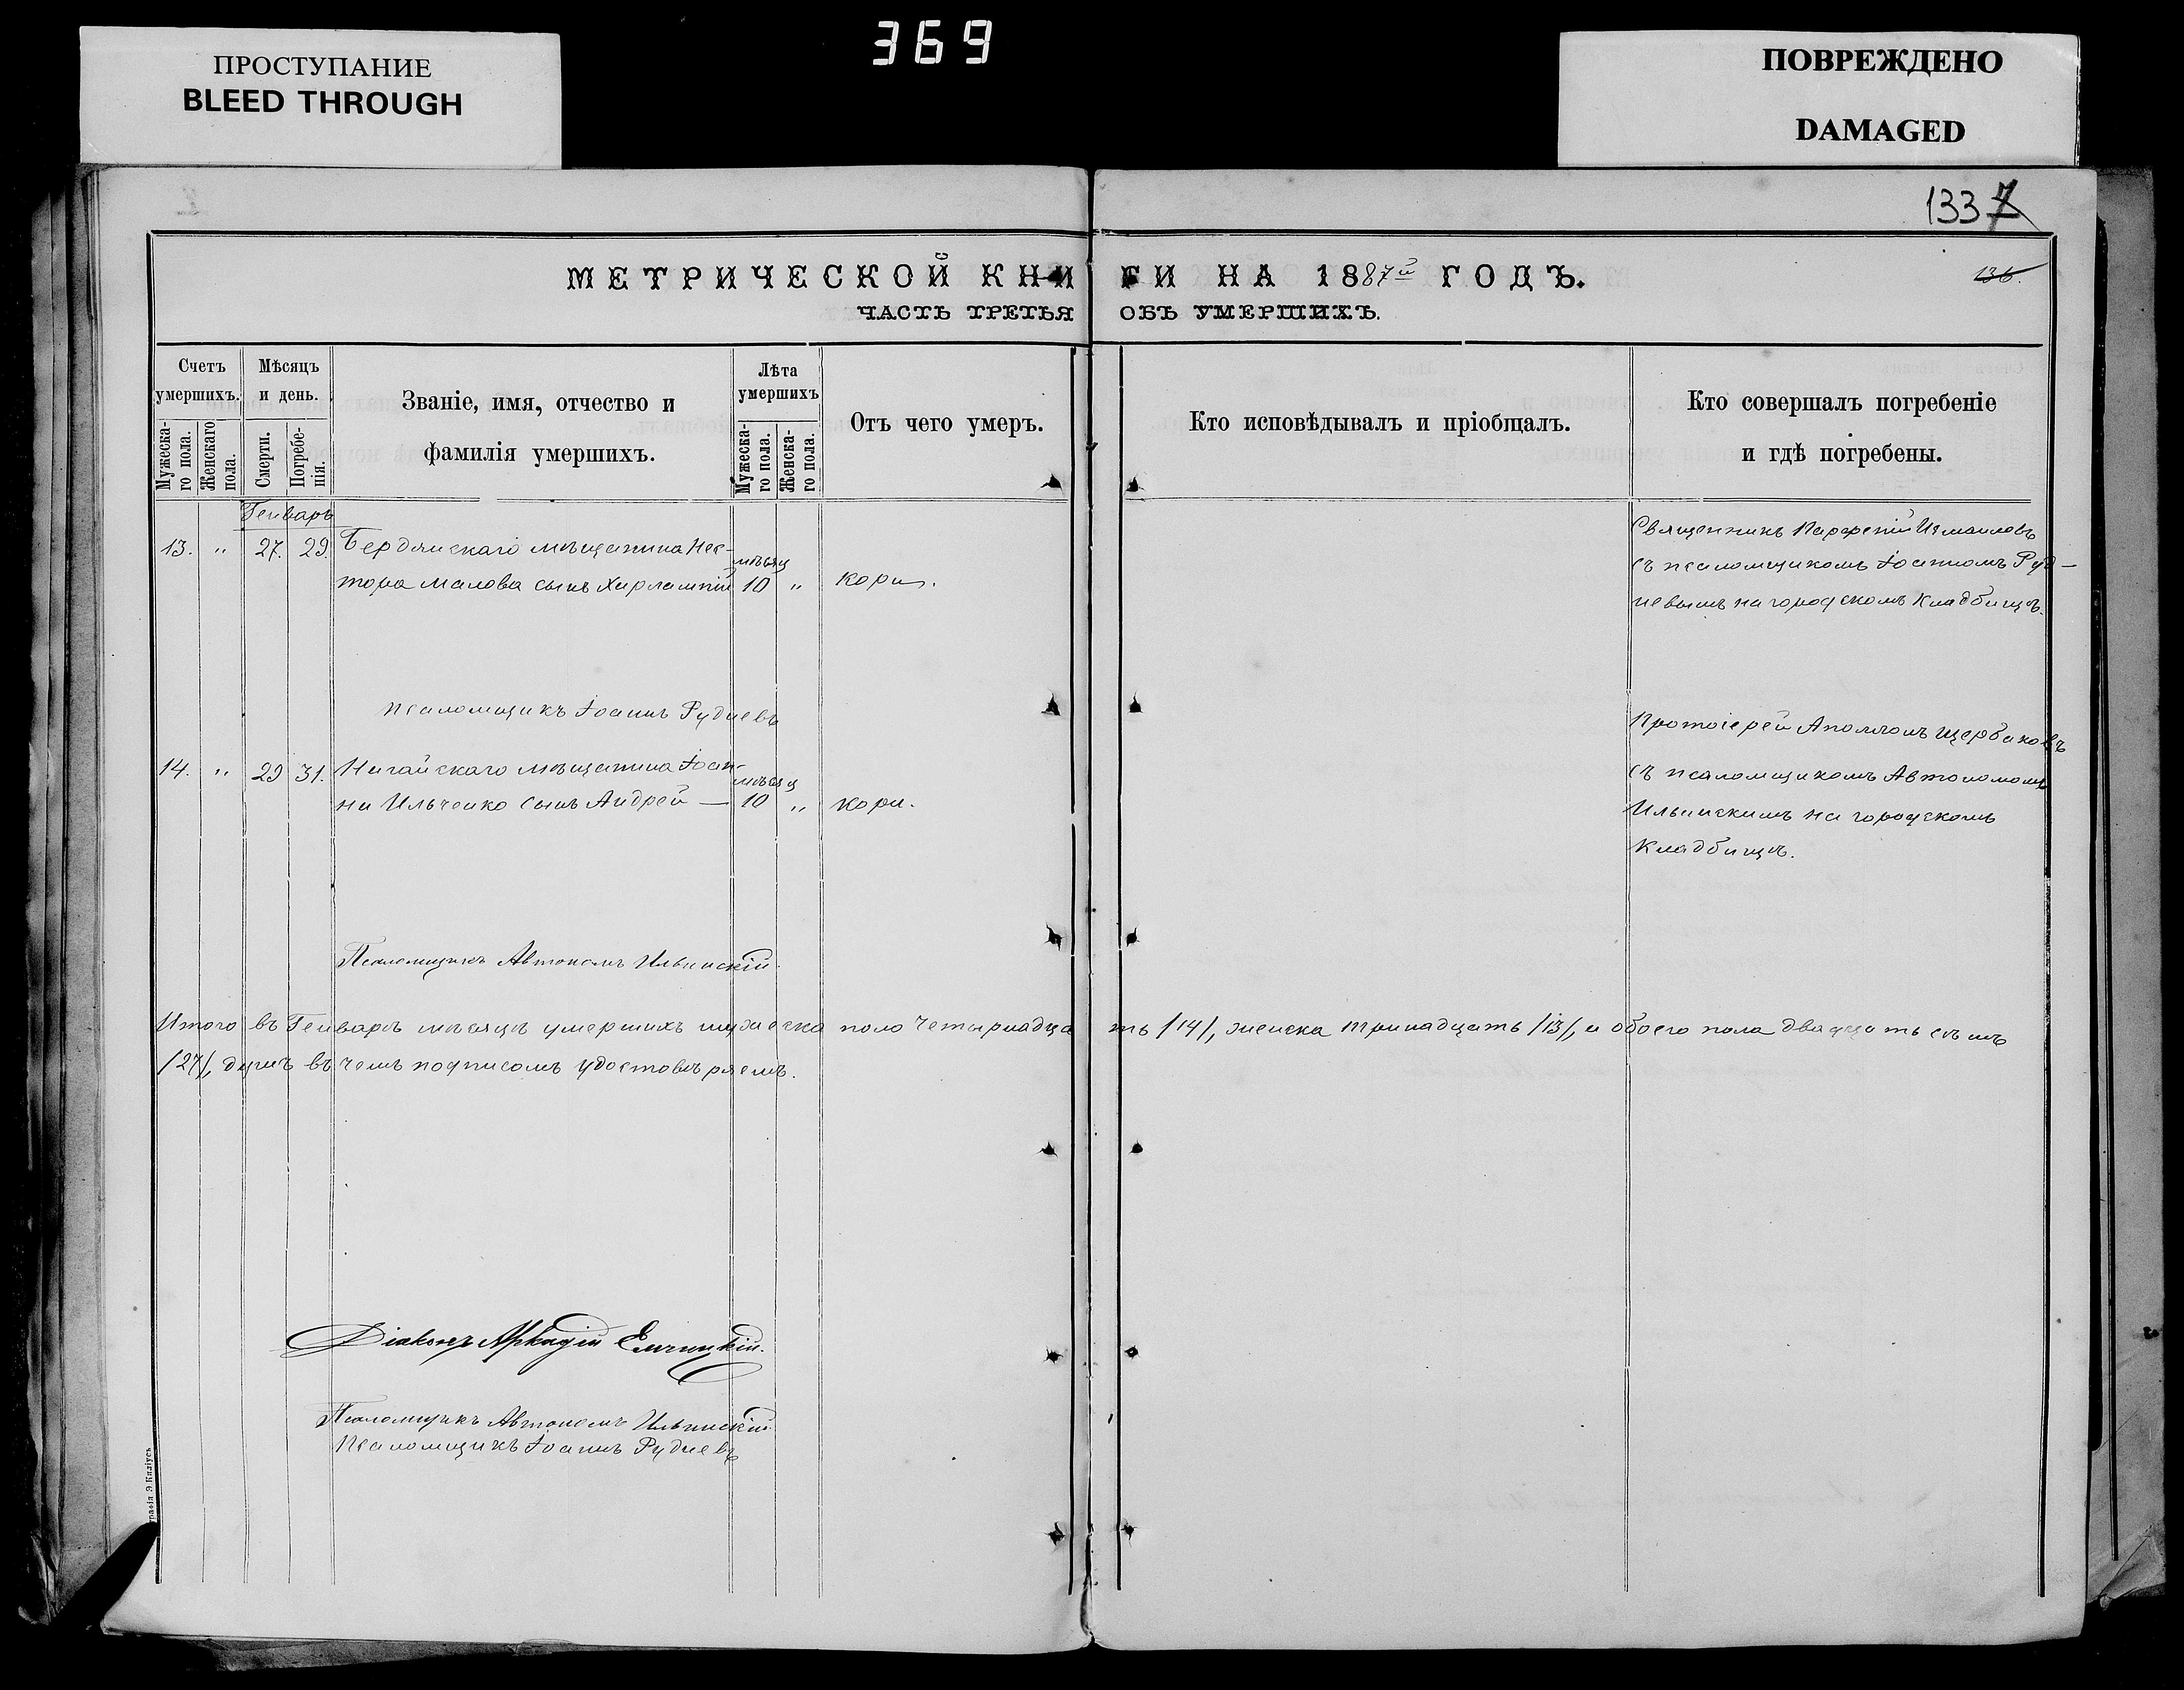 369
ПРОСТУПАНИЕ
BLEED THROUGH
ПОВРЕЖДЕНО
DAMAGED
133 7
МЕТРИЧЕСКОЙ КНИГИ НА 1887й ГОДЪ.
136.
ЧАСТЬ ТРЕТЬЯ ОБЪ УМЕРШИХЪ.
Счетъ умершихъ.
Мужеска-го пола.
Женскаго пола.
Мѣсяцъ и день.
Смерти.
Погребе-нія.
Званіе, имя, отчество и
фамилія умершихъ.
Лѣта умершихъ
Мужеска-го пола.
Женска-го пола.
Отъ чего умеръ.
Кто исповѣдывалъ и пріобщалъ.
Кто совершалъ погребеніе
и гдѣ погребены.
Генварь
13. " 27. 29. Бердянскаго мѣщанина Нес-
тора Малова сынъ Харлампій мѣсяц 10 " кори.
Священникъ Парфеній Измаиловъ
съ псаломщикомъ Іоанномъ Руд-
невымъ на городскомъ кладбищѣ.
Псаломщикъ Іоаннъ Рудневъ
14. " 29 31. Ногайскаго мѣщанина Іоан-
на Ильченко сынъ Андрей — мѣсяц 10 " кори.
Протоіерей Аполлонъ Щербаковъ
съ псаломщикомъ Автономомъ
Ильинскимъ на городскомъ
Кладбищѣ.
Псаломщикъ Автономъ Ильинскій.
Итого въ Генварѣ мѣсяцѣ умершихъ мужеска поло четырнадцать /14/, женска тринадцать /13/, и обоего пола двадцать семь
/27/, душъ въ чемъ подписомъ удостовѣряемъ.
Діаконъ Аркадій
Псаломщикъ Автономъ Ильинскій
Псаломщикъ Іоаннъ Рудневъ
графія Э Киліусъ